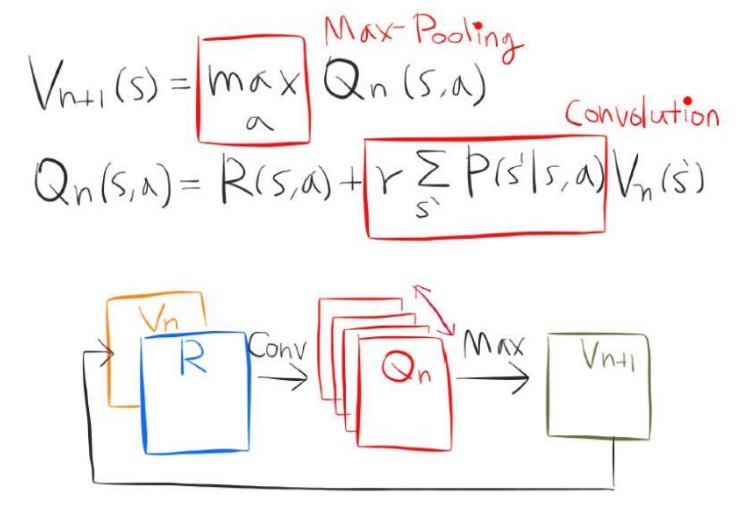 Max-Pooling
Vn+1(s) = max Qn(s,a)
a
Convolution
Qn(s,a) = R(s,a) + r Σ P(s'|s,a) Vn(s')
s'
Vn
R
Conv
Qn
Max
Vn+1